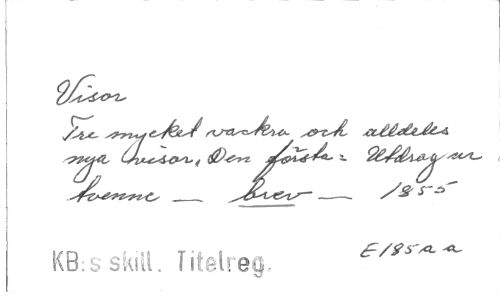 Visor
Tre mycket vackra och alldeles
nya visor, Den första: Utdrag ur
tvenne — brev — 1855
E185 a a
KB:s skill. Titelreg.